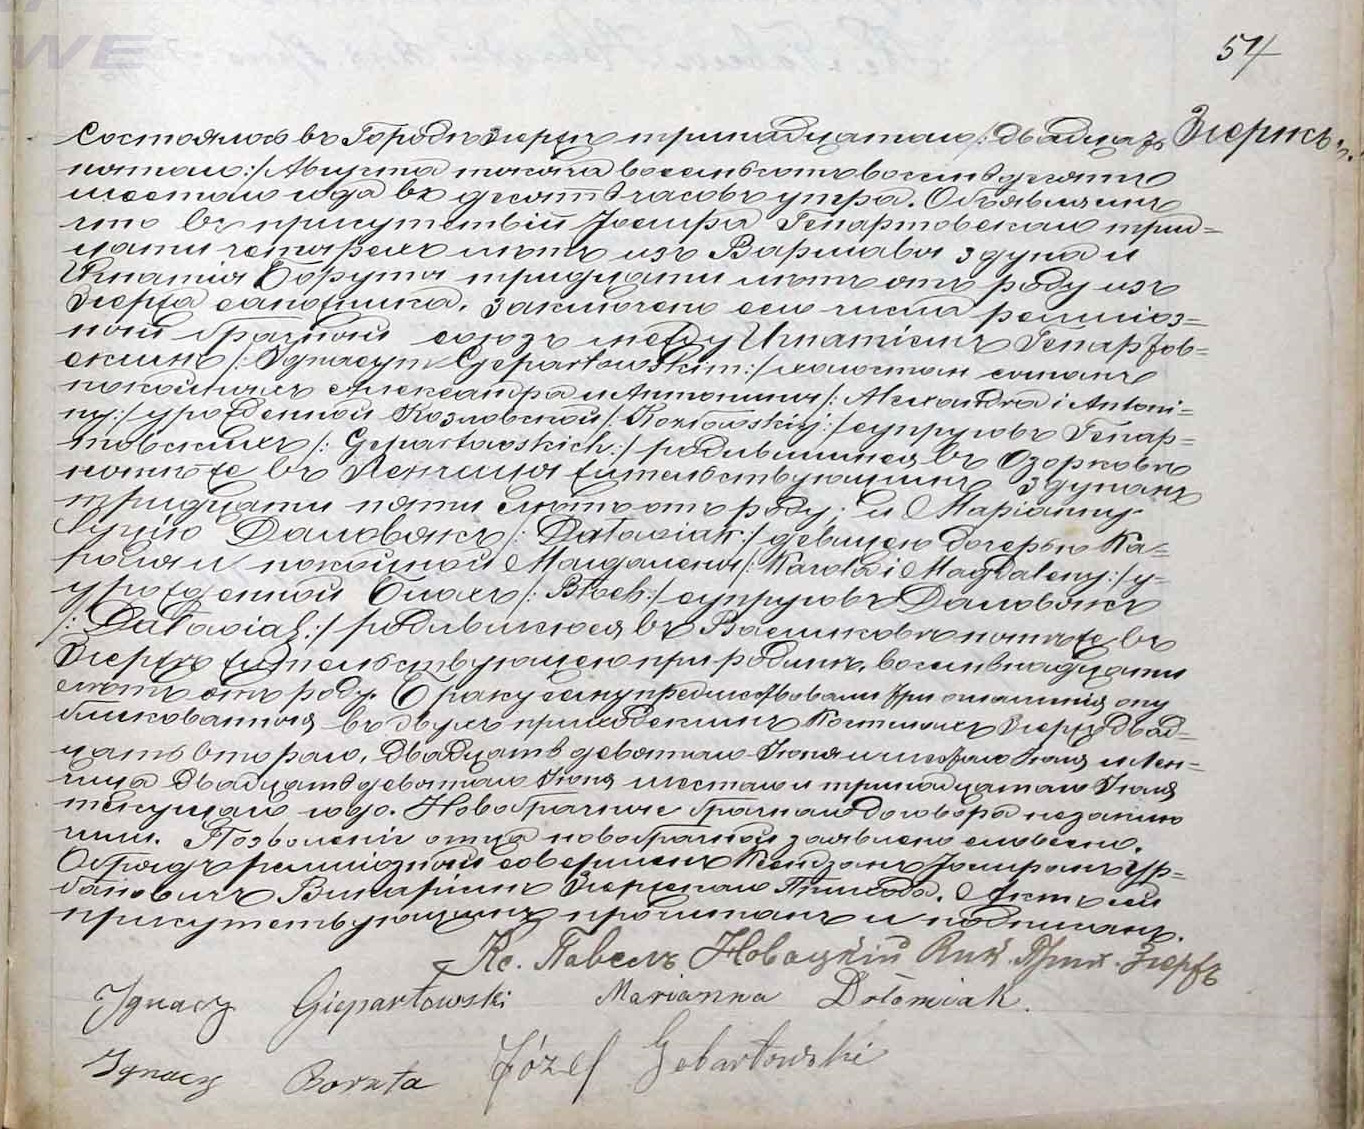 WE
57
Згержъ.
Состоялось въ Городѣ Згержѣ тринадцатаго /: двадцать
пятаго :/ Августа тысяча восемьсотъ восемьдесятъ
шестаго года въ десять часовъ утра. Объявляемъ
что въ присутствіи Іосифа Гепартовскаго трид=
цати четырехъ лѣтъ изъ Варшавы здуна и
Игнатія Боруты тридцати лѣтъ отъ роду изъ
Згержа сапожника, заключенъ сего числа религіоз=
ный брачный союзъ между Игнатіемъ Гепартов=
скимъ /: Ignacym Gepartowskim :/ холостымъ сыномъ
покойныхъ Александра и Антонины /: Alexandra i Antoni=
ny :/ урожденной Козловской /: Kozłowskiej :/ супруговъ Гепар=
товскихъ /: Gepartowskich :/ родившимся въ Озорковѣ
нынѣ же въ Ленчица жительствующимъ здуномъ
тридцати пяти лѣтъ отъ роду, и Маріанну
Даловякъ /: Datowiak :/ девицею дочерью Ка=
роля и покойной Магдалены /: Karola i Magdaleny :/ у=
урожденной Блохъ /: Błoch :/ супруговъ Даловякъ
/: Datowiak :/ родившеюся въ нынѣ же въ
Згержѣ жительствующею при родинѣ, восемьнадцати
лѣтъ отъ роду. Браку сему предшествовали три оглашенія опу
бликованныя въ двухъ приходскихъ Костелахъ Згержѣ двад=
цать втораго, двадцать девятаго Іюня и шестаго Іюля и Лен=
чица двадцать девятаго Іюня шестаго и тринадцатаго Іюля
текущаго года. Новобрачные брачнаго договора незаклю
чили. Позволеніе отца новобрачной заявлено словесно.
Обрядъ религіозный совершенъ Ксендзомъ Іосифомъ Ур=
бановичъ Викаріемъ Згержскаго Прихода. Актъ сей
присутствующимъ прочитанъ и подписанъ.
Кс. Павелъ Новацкій Вик. Прих. Згержъ
Ignacy Giepartowski Marianna Dołowiak.
Ignacy Boruta Józef Gebartowski